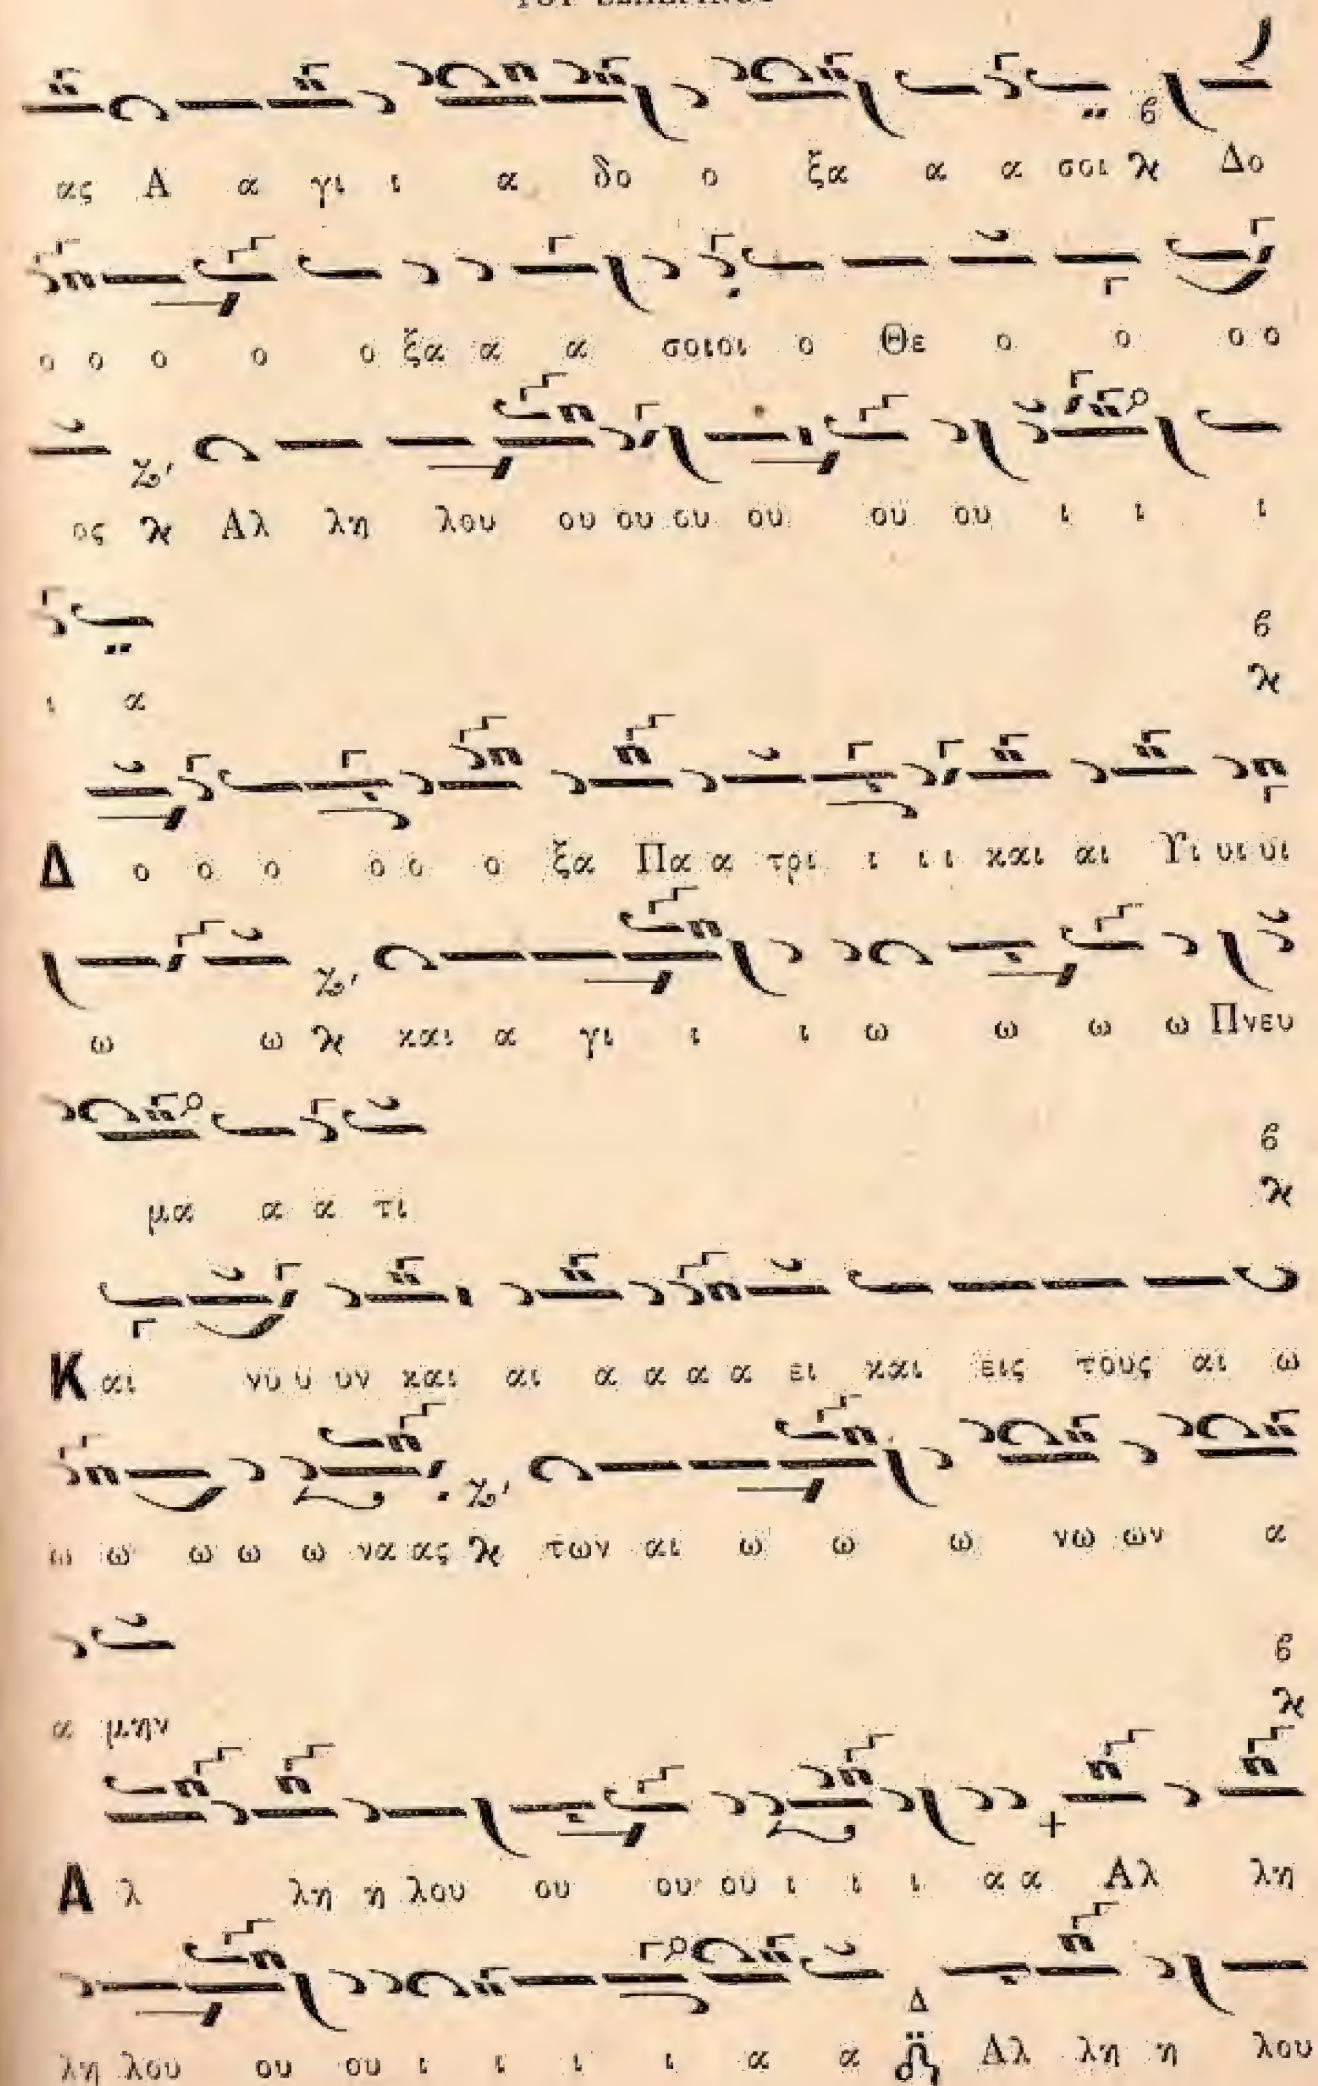 ας Α α γι ι α δο ο ξα α α σοι ϗ Δο
ο ο ο ο ο ξα α α σοιοι ο Θε ο ο ο ο
ος ϗ Αλ λη λου ου ου ου ου ου ου ι ι ι
ι α
Δ ο ο ο ο ο ο ξα Πα α τρι ι ι ι και αι Υι υι υι
ω ω ϗ και α γι ι ι ω ω ω ω Πνευ
μα α α τι
Και νυ υ υν και αι α α α α ει και εις τους αι ω
ω ω ω ω ω να ας ϗ των αι ω ω ω νω ων α
α μην
Α λ λη η λου ου ου ου ι ι ι α α Αλ λη
λη λου ου ου ι ι ι ι α α Αλ λη η λου